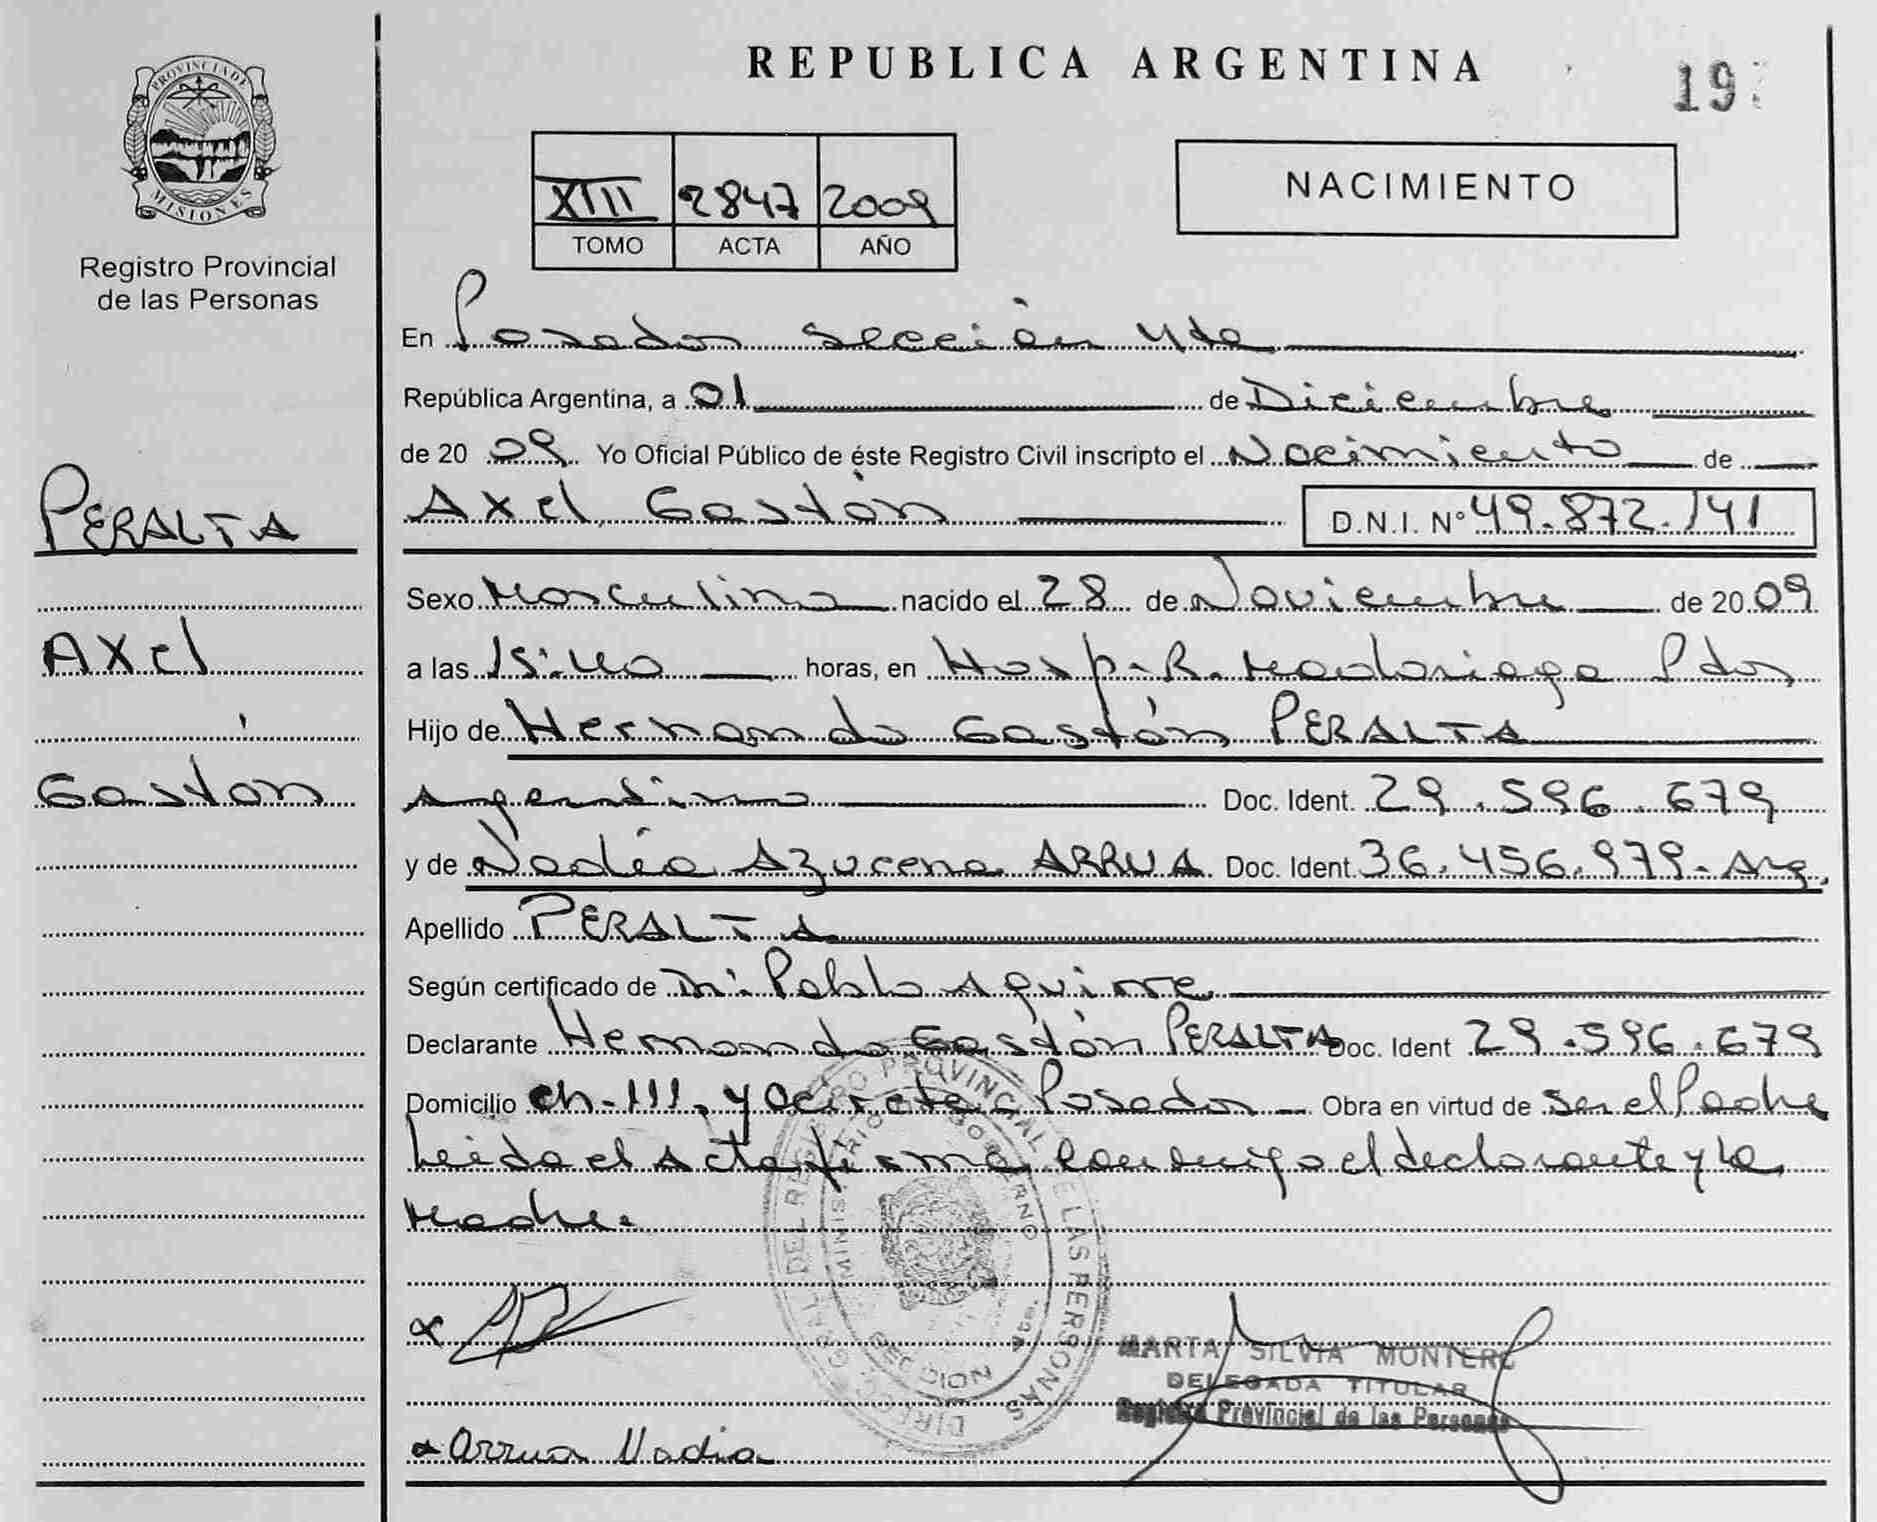 REPUBLICA ARGENTINA
19
PROVINCIA DE MISIONES
Registro Provincial
de las Personas
XIII 2847 2009
TOMO ACTA AÑO
NACIMIENTO
En Posadas sección 4ta
República Argentina, a 01 de Diciembre
de 20 09 Yo Oficial Público de éste Registro Civil inscripto el Nacimiento de
Axel Gastón D.N.I. Nº 49.872.141
PERALTA
Axel
Gastón
Sexo Masculino nacido el 28 de Noviembre de 20 09
a las 15:40 horas, en Hosp. R. Madariaga Pdas
Hijo de Hernando Gastón PERALTA
Argentino Doc. Ident. 29.596.679
y de Nadia Azucena ARRUA Doc. Ident. 36.456.979 - Arg.
Apellido PERALTA
Según certificado de Dr. Pablo Aguirre
Declarante Hernando Gastón PERALTA Doc. Ident 29.596.679
Domicilio ch-111, y Posadas Obra en virtud de ser el Padre
Leída el Acta firma conmigo el declarante y la
Madre.
DIRECC. GRAL. DEL REGISTRO PROVINCIAL DE LAS PERSONAS
MINISTERIO GOBIERNO
SECCION
MARTA SILVIA MONTERO
DELEGADA TITULAR
Registro Provincial de las Personas
Arrua Nadia